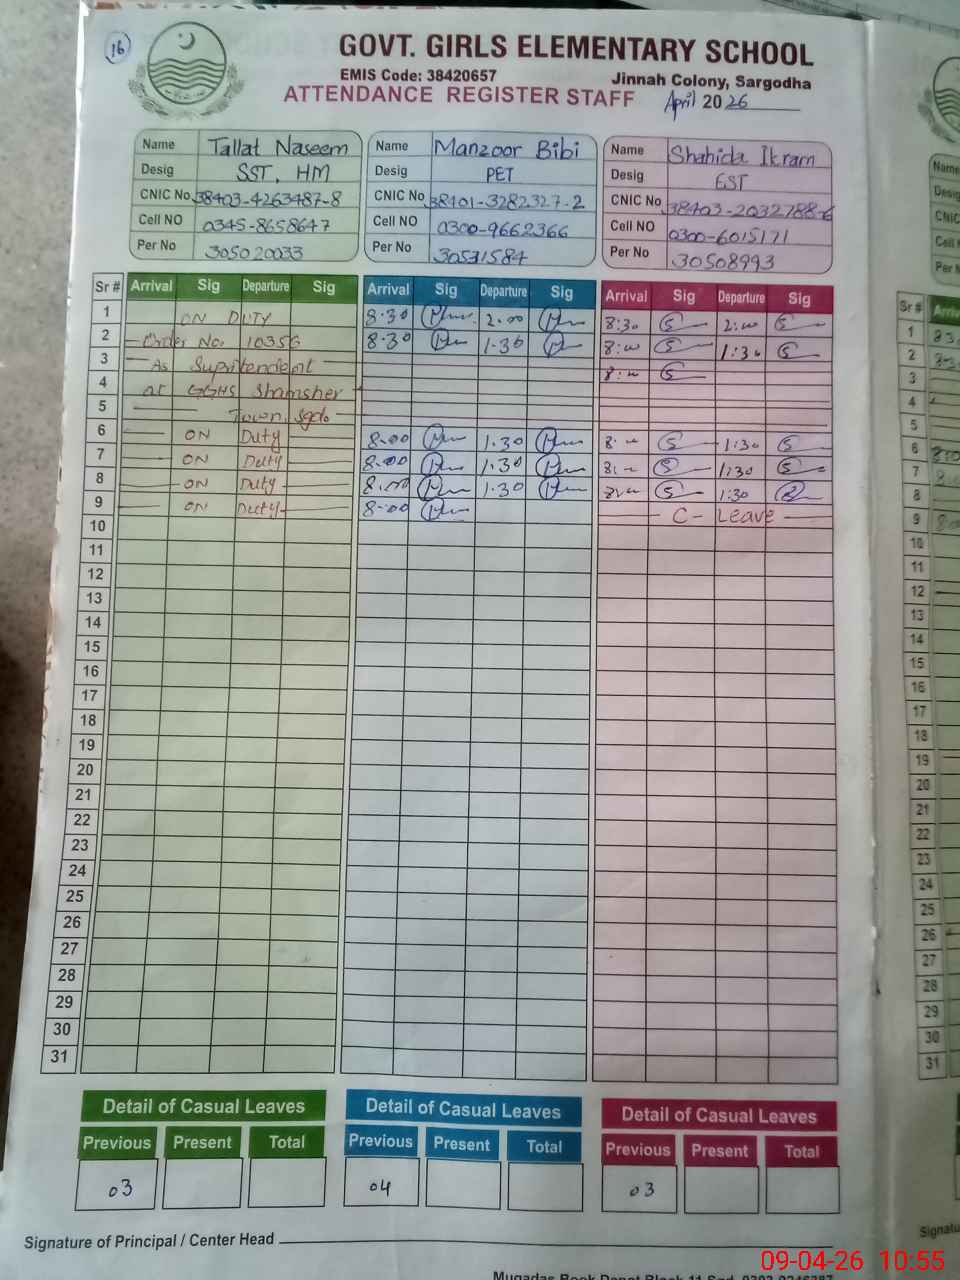 16
GOVT. GIRLS ELEMENTARY SCHOOL
EMIS Code: 38420657
Jinnah Colony, Sargodha
ATTENDANCE REGISTER STAFF April 2026
Name Tallat Naseem
Desig SST, HM
CNIC No. 38403-4263487-8
Cell NO 0345-8658647
Per No 305020033
Name Manzoor Bibi
Desig PET
CNIC No. 38401-3282327-2
Cell NO 0300-9662366
Per No 30531584
Name Shahida Ikram
Desig EST
CNIC No. 38403-2032788-6
Cell NO 0300-6015171
Per No 30508993
Sr # Arrival Sig Departure Sig Arrival Sig Departure Sig Arrival Sig Departure Sig
1 ON DUTY 8.30 2.00 8:30 2:00
2 Order No. 10356 8.30 1.30 8:00 1:30
3 As Supritendent 8:00
4 at GGHS Shamsher
5 Town, Sgd.
6 ON Duty 8.00 1.30 8:00 1:30
7 ON Duty 8.00 1.30 8:00 1:30
8 ON Duty 8.00 1.30 8:00 1:30
9 ON Duty 8.00 C- Leave
10
11
12
13
14
15
16
17
18
19
20
21
22
23
24
25
26
27
28
29
30
31
Detail of Casual Leaves
Previous Present Total
03
Detail of Casual Leaves
Previous Present Total
04
Detail of Casual Leaves
Previous Present Total
03
Signature of Principal / Center Head
09-04-26 10:55